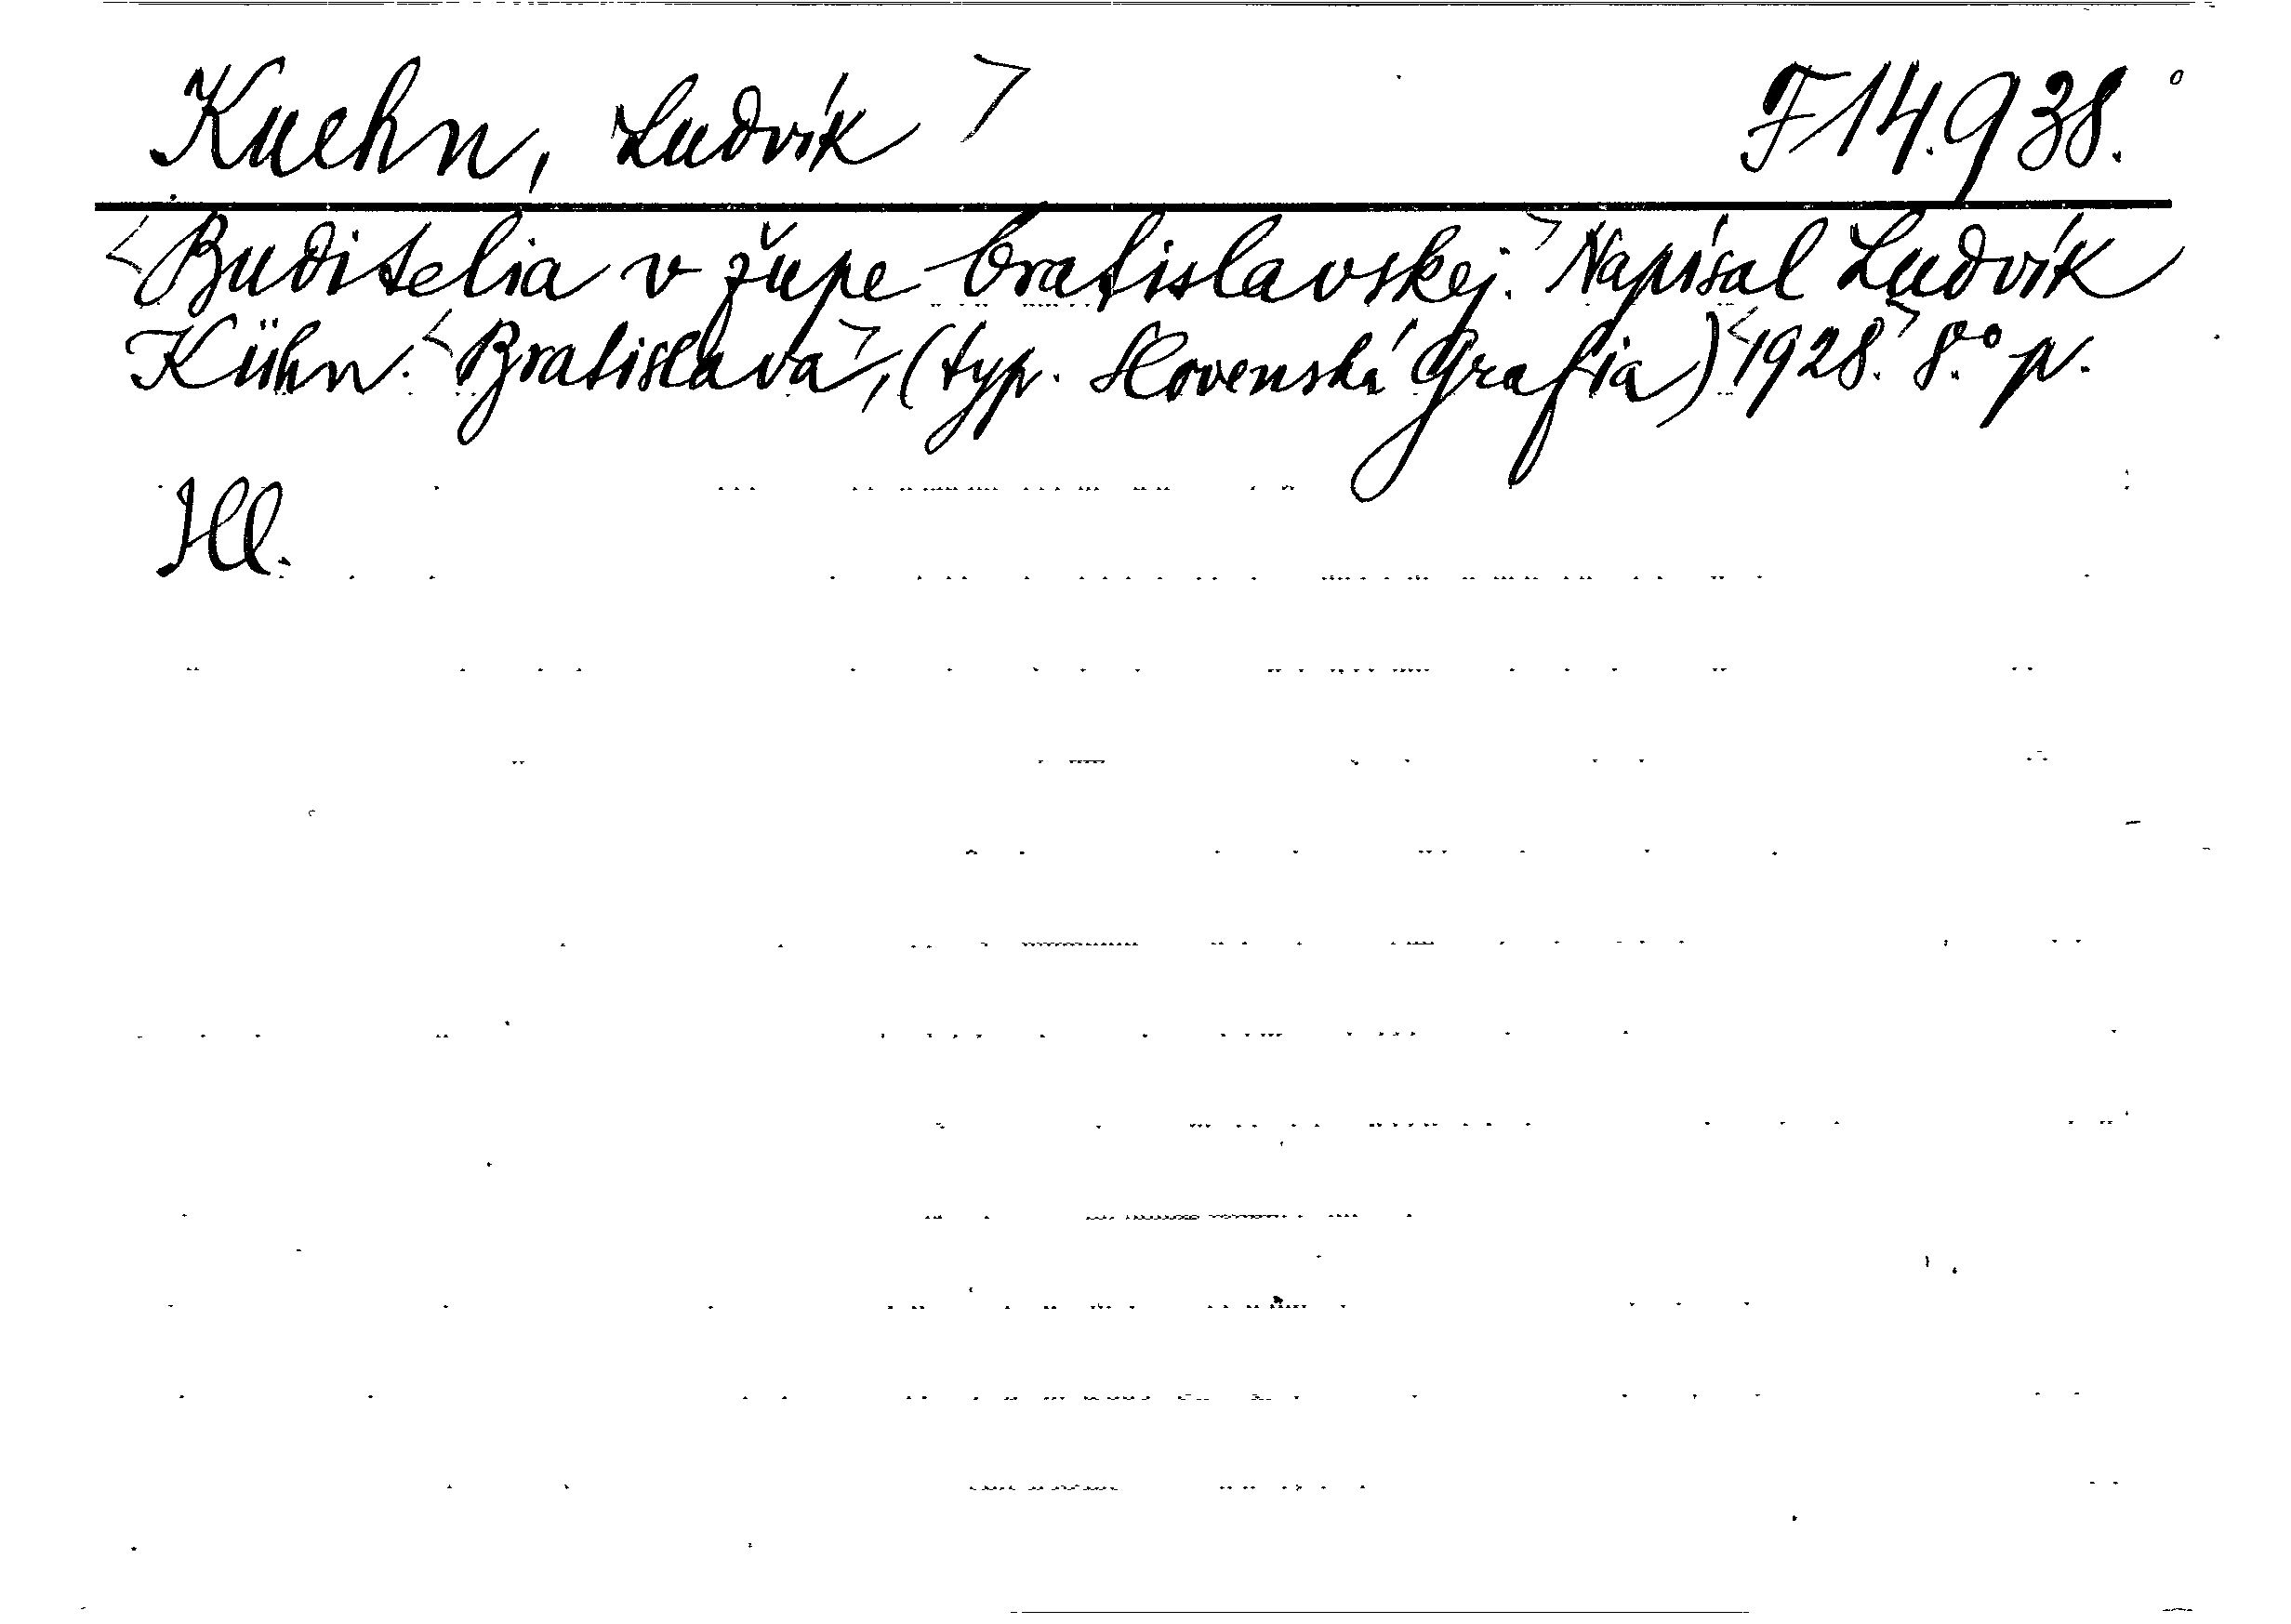 Kuehn, Ludvík > F 14.938.
<Buditelia v župe bratislavskej.> Napísal Ludvík
Kühn. <Bratislava>, (typ. Slovenská Grafia) <1928.> 8.° p.
Hl.